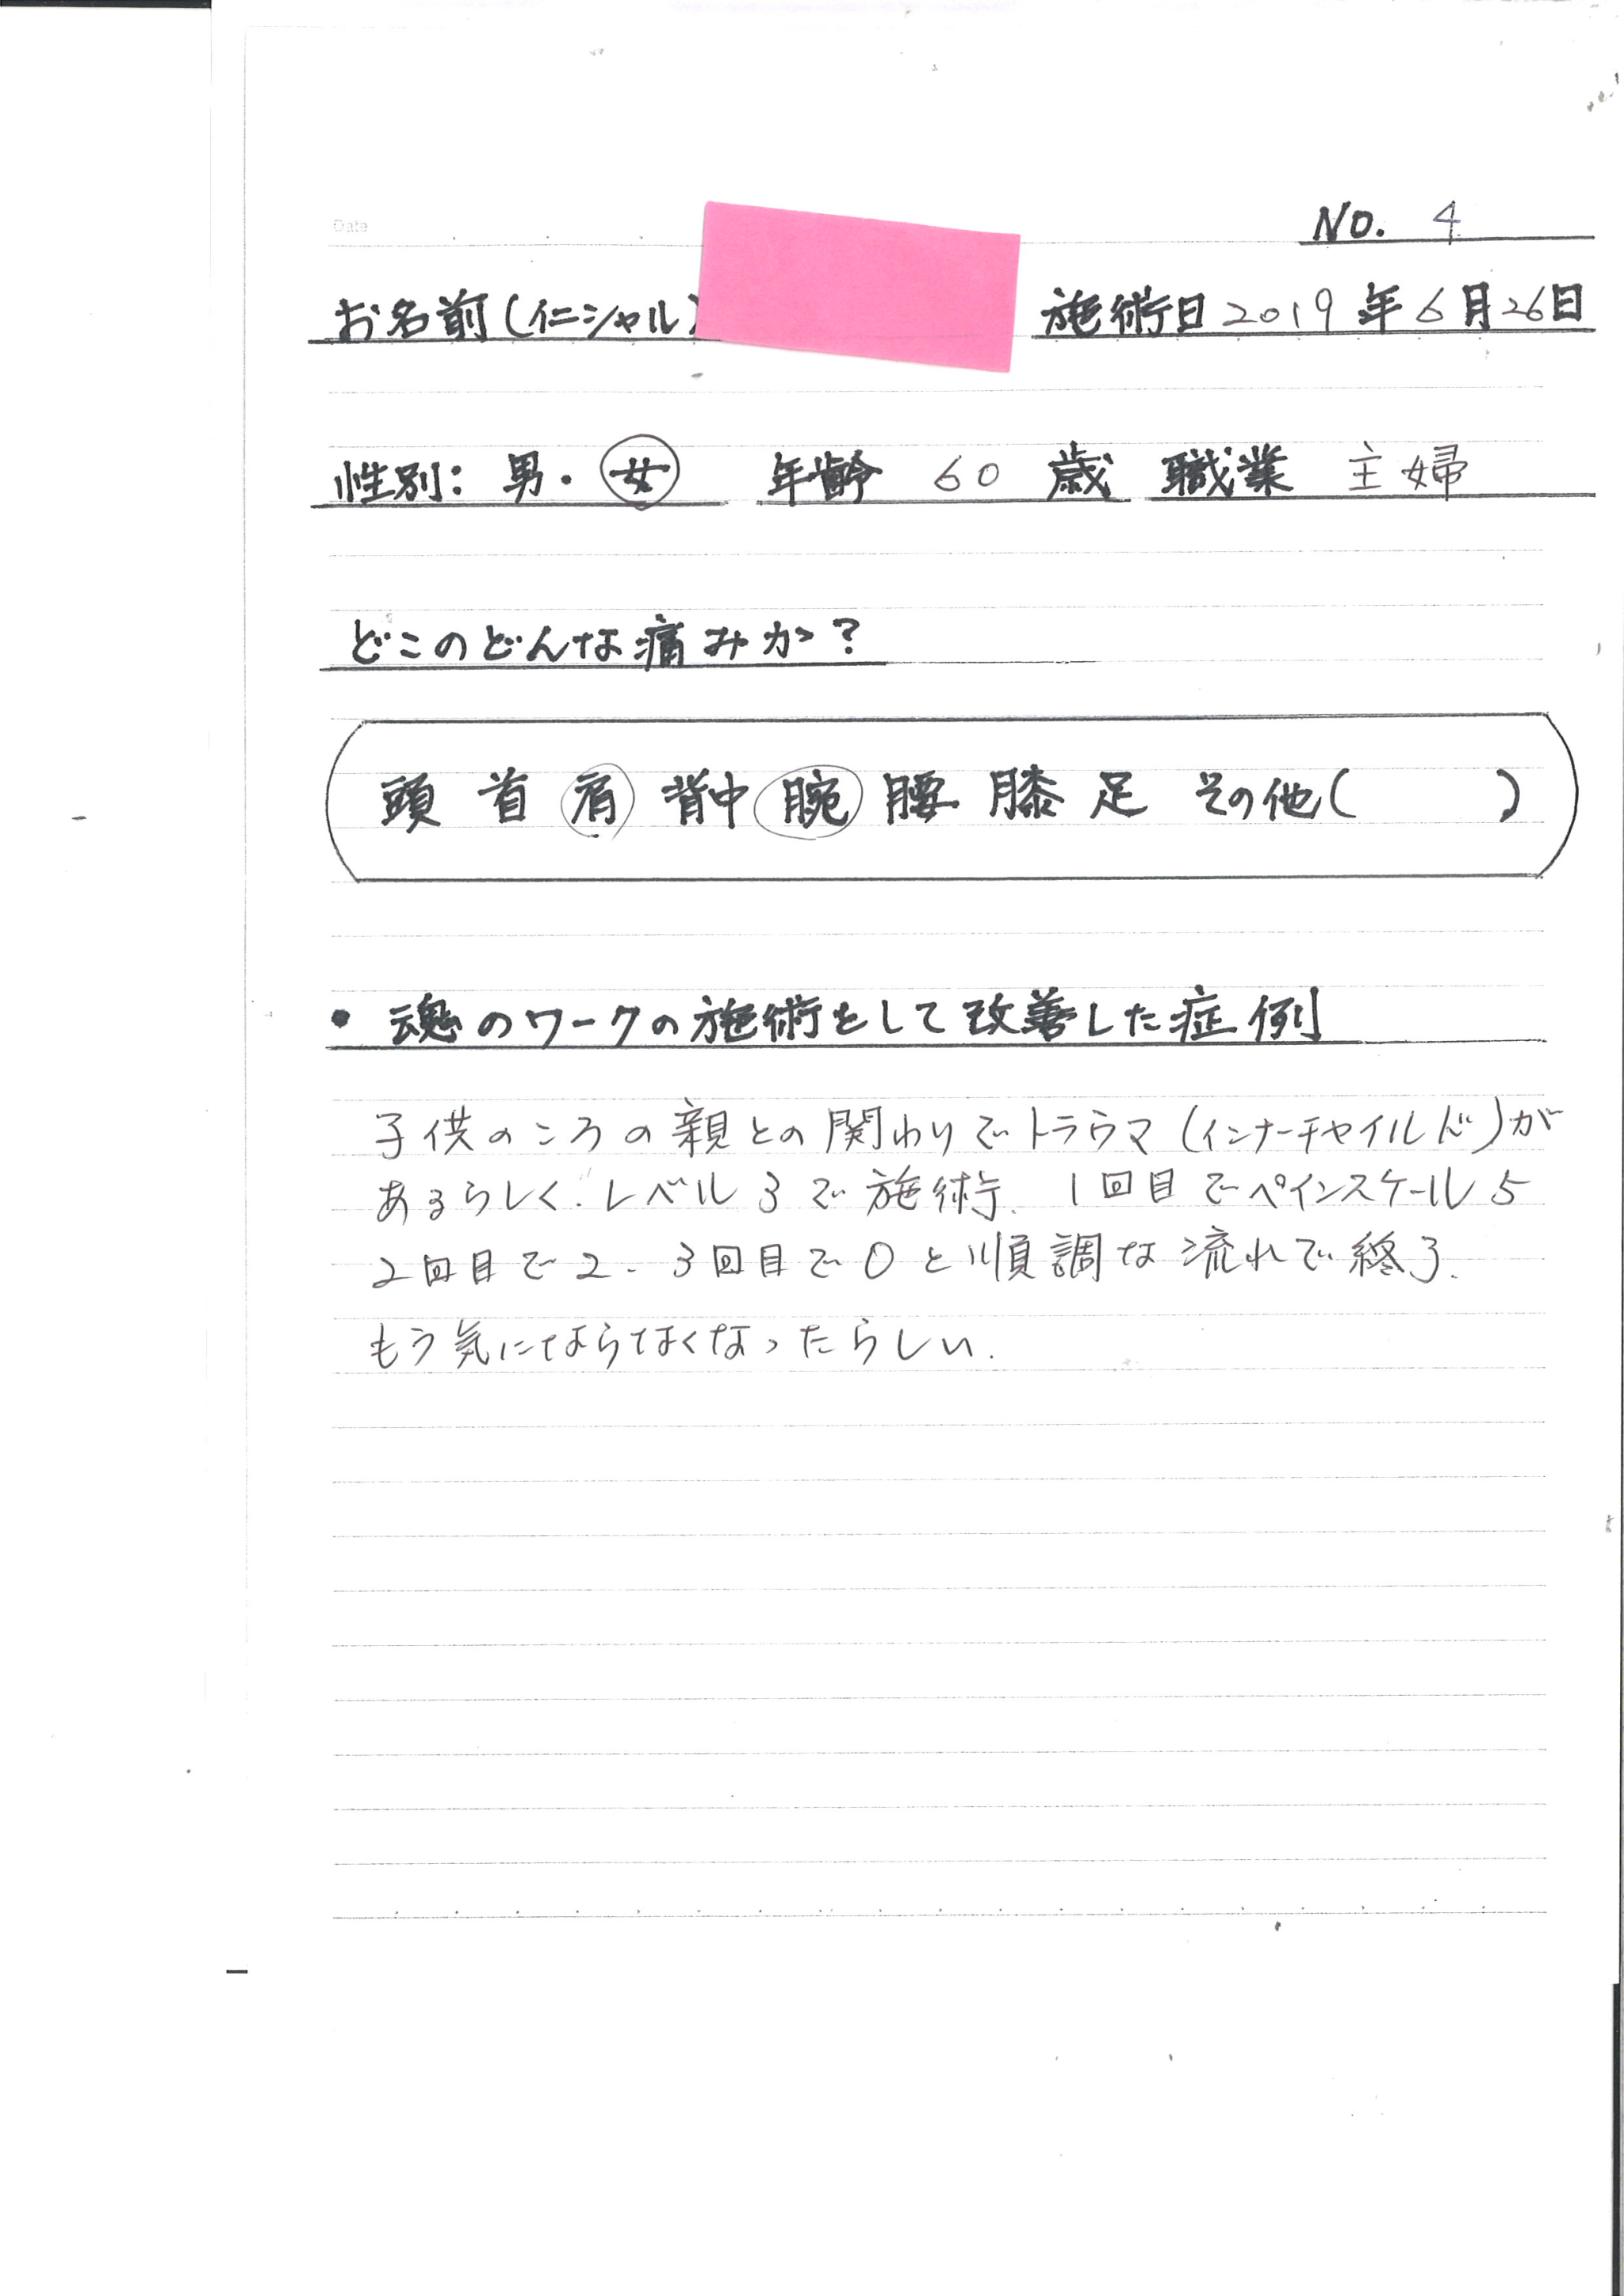 Date
NO. 4
お名前(イニシャル) 施術日 2019 年 6 月 26 日
性別: 男・女 年齢 60 歳 職業 主婦
どこのどんな痛みか?
頭 首 肩 背中 腕 腰 膝 足 その他( )
• 魂のワークの施術をして改善した症例
子供のころの親との関わりでトラウマ(インナーチャイルド)が
あるらしく. レベル3で施術. 1回目でペインスケール5
2回目で2. 3回目で0と順調な流れで終了.
もう気にならなくなったらしい.